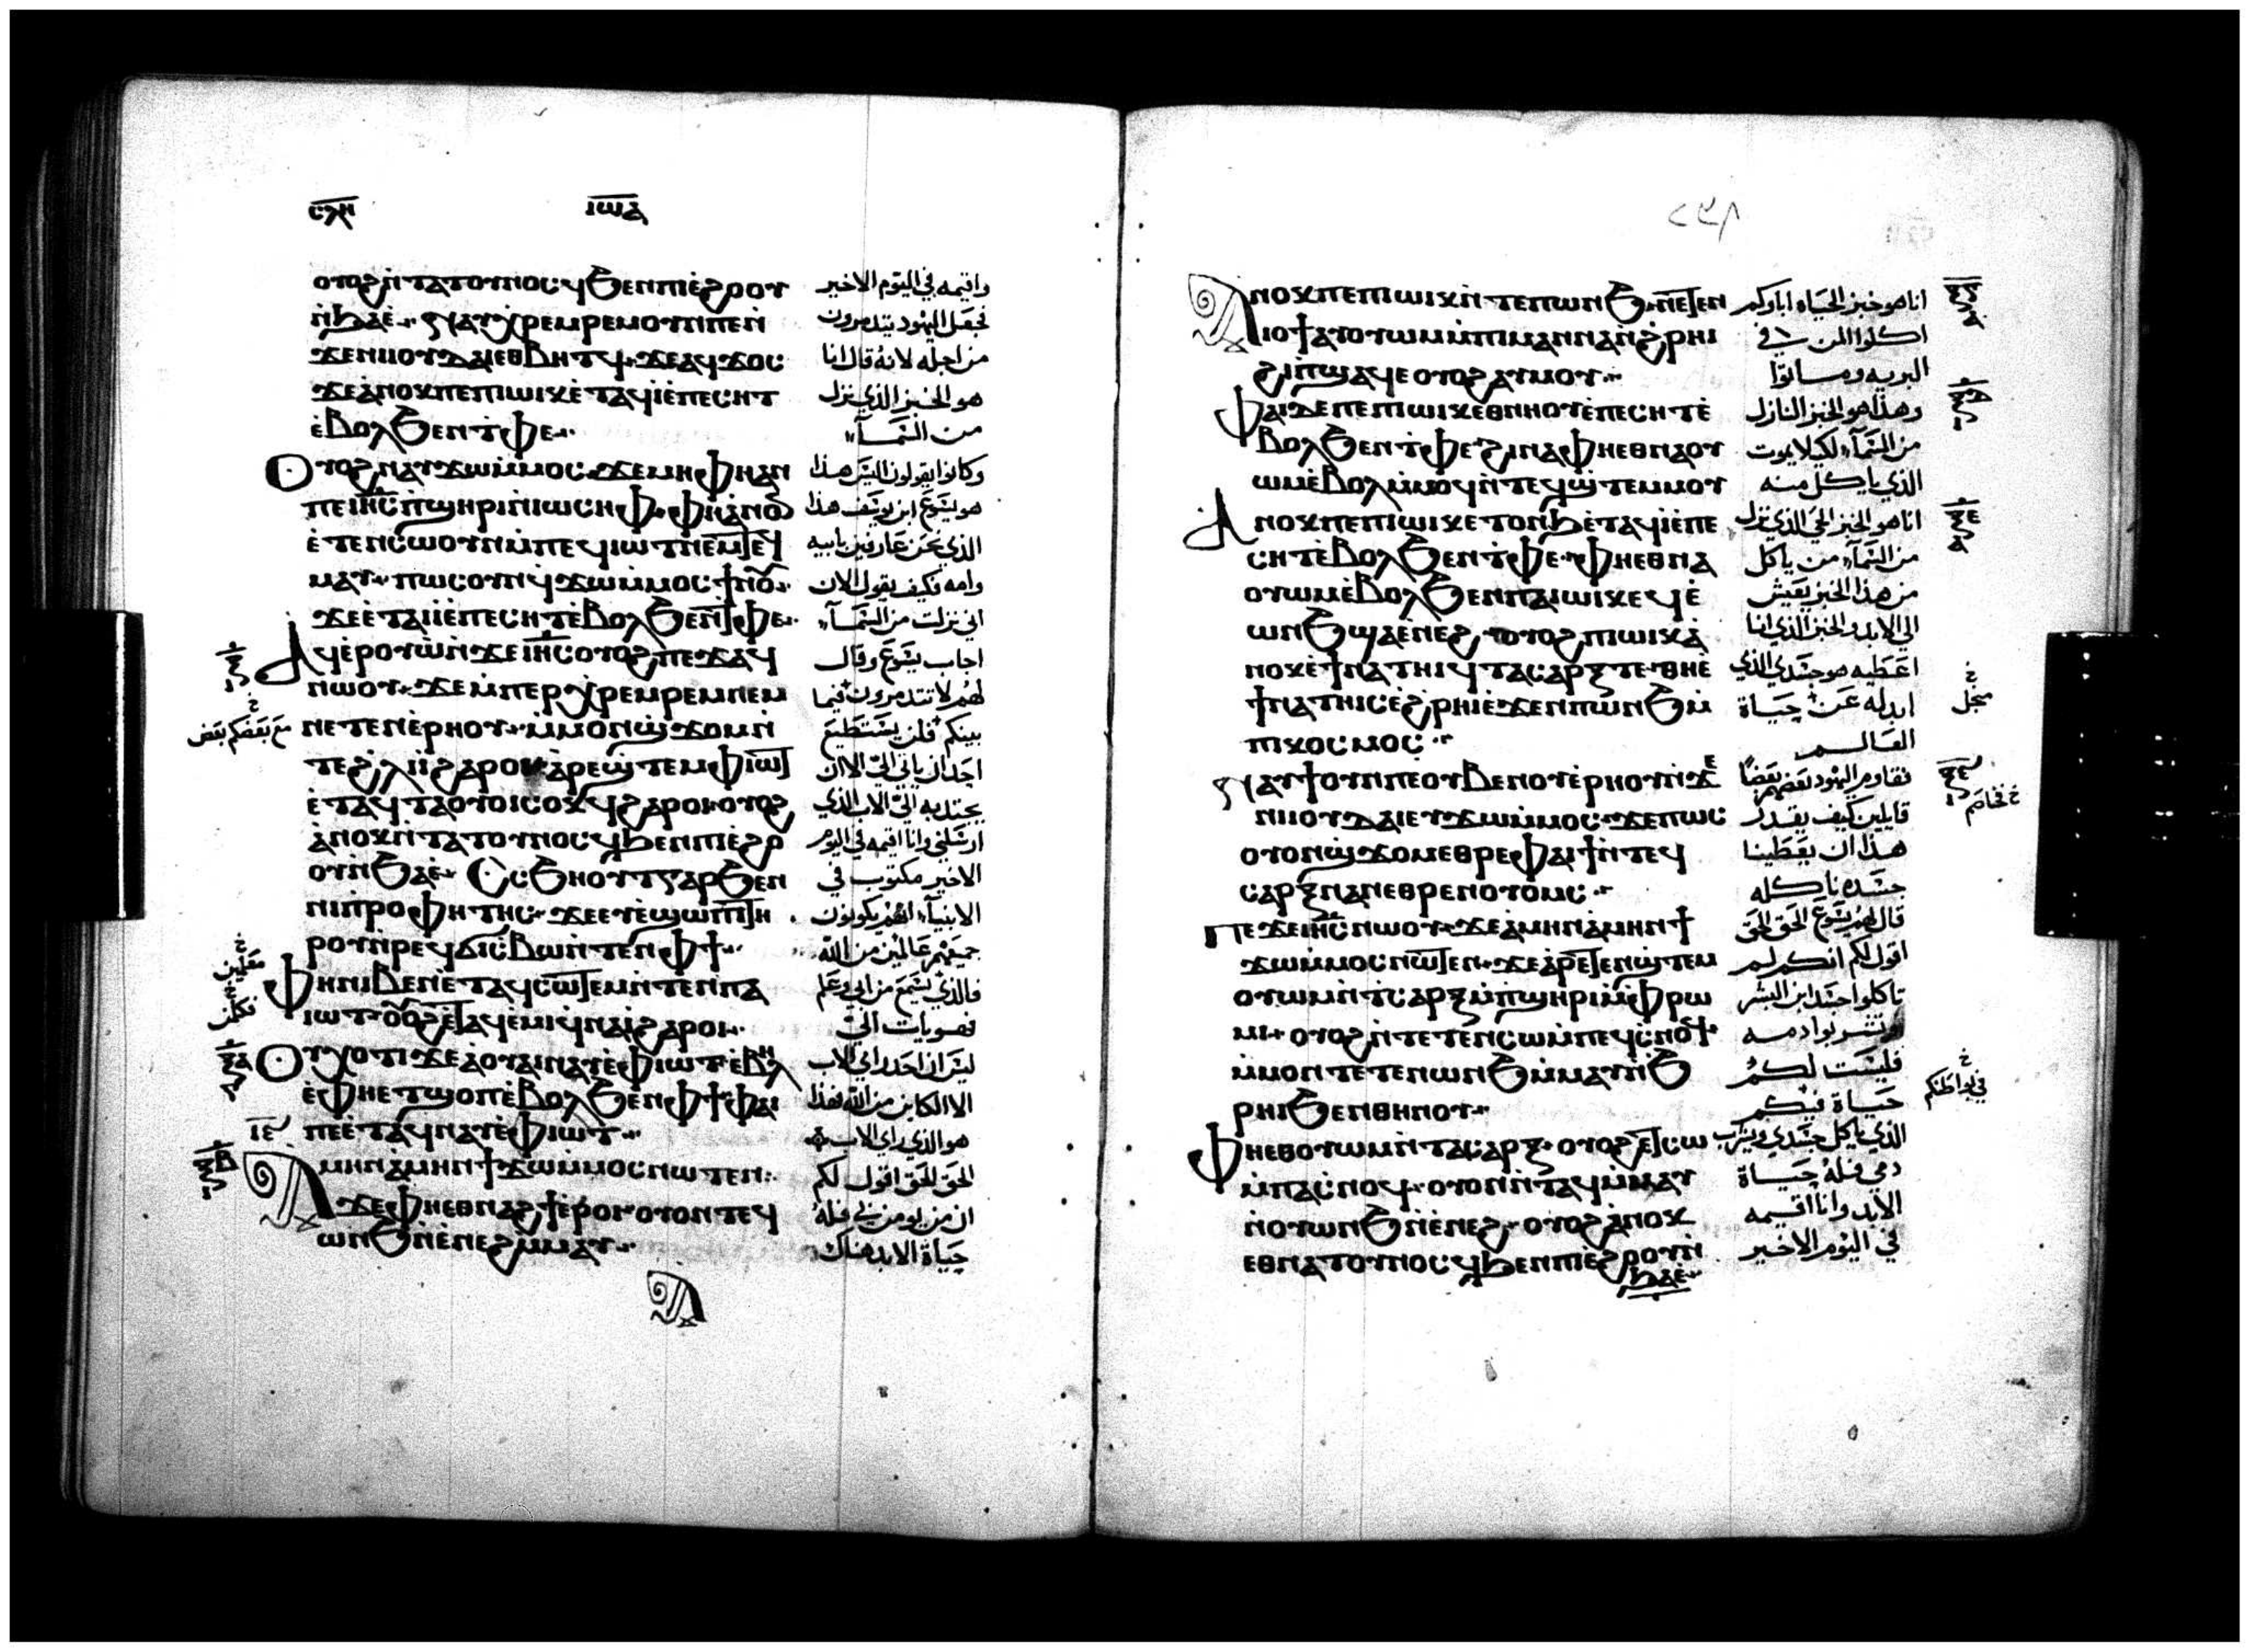 ⲥⲗⲏ
ⲓⲱⲁ
ⲟⲩⲟϩ ⲛ̀ⲧⲁⲧⲟⲩⲛⲟⲥϥ ϧⲉⲛ ⲡⲓⲉ̀ϩⲟⲟⲩ
ⲛ̀ϧⲁⲉ̀
ⲛⲁⲩⲭⲣⲉⲙⲣⲉⲙ ⲟⲩⲛ ⲡⲉ ⲛ̀
ϫⲉ ⲛⲓⲓⲟⲩⲇⲁⲓ ⲉⲑⲃⲏⲧϥ ϫⲉ ⲁϥϫⲟⲥ
ϫⲉ ⲁ̀ⲛⲟⲕ ⲡⲉ ⲡⲓⲱⲓⲕ ⲉ̀ⲧⲁϥⲓ̀ ⲉ̀ⲡⲉⲥⲏⲧ
ⲉ̀ⲃⲟⲗ ϧⲉⲛ ⲧ̀ⲫⲉ
ⲟⲩⲟϩ ⲛⲁⲩϫⲱ ⲙ̀ⲙⲟⲥ ϫⲉ ⲙⲏ ⲫⲏ ⲁⲛ
ⲡⲉ ⲓⲏ̅ⲥ̅ ⲡ̀ϣⲏⲣⲓ ⲛ̀ⲓⲱⲥⲏⲫ ⲫⲏ ⲁ̀ⲛⲟⲛ
ⲉ̀ⲧⲉⲛⲥⲱⲟⲩⲛ ⲙ̀ⲡⲉϥⲓⲱⲧ ⲛⲉⲙ ⲧⲉϥ
ⲙⲁⲩ ⲡⲱⲥ ⲟⲩⲛ ϥ̀ϫⲱ ⲙ̀ⲙⲟⲥ ϯⲛⲟⲩ
ϫⲉ ⲉ̀ⲧⲁⲓⲓ̀ ⲉ̀ⲡⲉⲥⲏⲧ ⲉ̀ⲃⲟⲗ ϧⲉⲛ ⲧ̀ⲫⲉ
ⲁϥⲉ̀ⲣⲟⲩⲱ̀ ⲛ̀ϫⲉ ⲓⲏ̅ⲥ̅ ⲟⲩⲟϩ ⲡⲉϫⲁϥ
ⲛⲱⲟⲩ ϫⲉ ⲙ̀ⲡⲉⲣⲭⲣⲉⲙⲣⲉⲙ ⲛⲉⲙ
ⲛⲉⲧⲉⲛⲉ̀ⲣⲏⲟⲩ ⲙ̀ⲙⲟⲛ ϣ̀ϫⲟⲙ ⲛ̀
ⲧⲉ ϩ̀ⲗⲓ ⲓ̀ ϩⲁⲣⲟⲓ ⲁⲣⲉϣⲧⲉⲙ ⲫⲓⲱⲧ
ⲉ̀ⲧⲁϥⲧⲁⲟⲩⲟⲓ ⲥⲟⲕϥ ϩⲁⲣⲟⲓ ⲟⲩⲟϩ
ⲁ̀ⲛⲟⲕ ⲛ̀ⲧⲁⲧⲟⲩⲛⲟⲥϥ ϧⲉⲛ ⲡⲓⲉ̀ϩⲟ
ⲟⲩ ⲛ̀ϧⲁⲉ̀ ⲥ̀ⲥϧⲏⲟⲩⲧ ⲅⲁⲣ ϧⲉⲛ
ⲛⲓⲡ̀ⲣⲟⲫⲏⲧⲏⲥ ϫⲉ ⲉⲩⲉ̀ϣⲱⲡⲓ ⲧⲏ
ⲣⲟⲩ ⲛ̀ⲣⲉϥϭⲓⲥ̀ⲃⲱ ⲛ̀ⲧⲉⲛ ⲫϯ
ⲫⲏ ⲛⲓⲃⲉⲛ ⲉ̀ⲧⲁϥⲥⲱⲧⲉⲙ ⲛ̀ⲧⲉⲛ ⲡⲁ
ⲓⲱⲧ ⲟⲩⲟϩ ⲉ̀ⲧⲁϥⲉ̀ⲙⲓ ϥ̀ⲛⲁⲓ̀ ϩⲁⲣⲟⲓ
ⲟⲩⲭ ⲟⲧⲓ ϫⲉ ⲁ̀ ⲟⲩⲁⲓ ⲛⲁⲩ ⲉ̀ⲫⲓⲱⲧ ⲉ̀ⲃⲏⲗ
ⲉ̀ⲫⲏ ⲉⲧϣⲟⲡ ⲉ̀ⲃⲟⲗ ϧⲉⲛ ⲫϯ ⲫⲁⲓ
ⲡⲉ ⲉ̀ⲧⲁϥⲛⲁⲩ ⲉ̀ⲫⲓⲱⲧ
ⲁⲙⲏⲛ ⲁ̀ⲙⲏⲛ ϯϫⲱ ⲙ̀ⲙⲟⲥ ⲛⲱⲧⲉⲛ
ϫⲉ ⲫⲏ ⲉⲑⲛⲁϩϯ ⲉ̀ⲣⲟⲓ ⲟⲩⲟⲛⲧⲉϥ
ⲱⲛϧ ⲛ̀ⲉ̀ⲛⲉϩ ⲙ̀ⲙⲁⲩ
واقيمه في اليوم الاخير
فجعل اليهود يتدمرون
من اجله لانه قال انا
هو الخبز الذي نزل
من السمآء
وكانوا يقولون اليس هذا
هو يسوع ابن يوسف هذا
الذي نحن عارفين بابيه
وامه فكيف يقول الان
اني نزلت من السمآء
اجاب يسوع وقال
لهم لا تتدمرون فيما
بينكم فلن يستطيع
احد ان ياتي اليّ الا ان
يجتذبه اليّ الاب الذي
ارسلني وانا اقيمه في اليوم
الاخير مكتوب في
الانبيآء انهم يكونون
جميعهم عالمين من الله
فالذي يسمع من ابي وعلم
فهو يات اليّ
ليس ان احد راي الاب
الا الكاين من الله فهذا
هو الذي راي الاب
الحق الحق اقول لكم
ان من يومن بي فله
حياة الابد هناك
مع بعضكم بعض
معلمين
ⲓⲉ
٢٣٨
ⲁⲛⲟⲕ ⲡⲉ ⲡⲓⲱⲓⲕ ⲛ̀ⲧⲉ ⲡⲱⲛϧ ⲛⲉⲧⲉⲛ
ⲓⲟϯ ⲁⲩⲟⲩⲱⲙ ⲙ̀ⲡⲓⲙⲁⲛⲛⲁ ⲛ̀ϩ̀ⲣⲏⲓ
ϩⲓ ⲡ̀ϣⲁϥⲉ ⲟⲩⲟϩ ⲁⲩⲙⲟⲩ
ⲫⲁⲓ ⲇⲉ ⲡⲉ ⲡⲓⲱⲓⲕ ⲉⲑⲛⲏⲟⲩ ⲉ̀ⲡⲉⲥⲏⲧ ⲉ̀
ⲃⲟⲗ ϧⲉⲛ ⲧ̀ⲫⲉ ϩⲓⲛⲁ ⲫⲏ ⲉⲑⲛⲁⲟⲩ
ⲱⲙ ⲉ̀ⲃⲟⲗ ⲙ̀ⲙⲟϥ ⲛ̀ⲧⲉϥϣ̀ⲧⲉⲙⲙⲟⲩ
ⲁⲛⲟⲕ ⲡⲉ ⲡⲓⲱⲓⲕ ⲉⲧⲟⲛϧ ⲉ̀ⲧⲁϥⲓ̀ ⲉ̀ⲡⲉ
ⲥⲏⲧ ⲉ̀ⲃⲟⲗ ϧⲉⲛ ⲧ̀ⲫⲉ ⲫⲏ ⲉⲑⲛⲁ
ⲟⲩⲱⲙ ⲉ̀ⲃⲟⲗ ϧⲉⲛ ⲡⲁⲓⲱⲓⲕ ⲉϥⲉ̀
ⲱⲛϧ ϣⲁ ⲉ̀ⲛⲉϩ ⲟⲩⲟϩ ⲡⲓⲱⲓⲕ ⲁ̀
ⲛⲟⲕ ⲉ̀ϯⲛⲁⲧⲏⲓϥ ⲧⲁⲥⲁⲣⲝ ⲧⲉ ⲑⲏ ⲉ̀
ϯⲛⲁⲧⲏⲓⲥ ⲉ̀ϩ̀ⲣⲏⲓ ⲉϫⲉⲛ ⲡ̀ⲱⲛϧ ⲙ̀
ⲡⲓⲕⲟⲥⲙⲟⲥ
ⲛⲁⲩϯ ⲟⲩⲛ ⲡⲉ ⲟⲩⲃⲉ ⲛⲟⲩⲉ̀ⲣⲏⲟⲩ ⲛ̀ϫⲉ
ⲛⲓⲓⲟⲩⲇⲁⲓ ⲉⲩϫⲱ ⲙ̀ⲙⲟⲥ ϫⲉ ⲡⲱⲥ
ⲟⲩⲟⲛ ϣ̀ϫⲟⲙ ⲉⲑⲣⲉ ⲫⲁⲓ ϯ ⲛ̀ⲧⲉϥ
ⲥⲁⲣⲝ ⲛⲁⲛ ⲉⲑⲣⲉⲛⲟⲩⲟⲙⲥ
ⲡⲉϫⲉ ⲓⲏ̅ⲥ̅ ⲛⲱⲟⲩ ϫⲉ ⲁ̀ⲙⲏⲛ ⲁ̀ⲙⲏⲛ ϯ
ϫⲱ ⲙ̀ⲙⲟⲥ ⲛⲱⲧⲉⲛ ϫⲉ ⲁ̀ⲣⲉⲧⲉⲛϣ̀ⲧⲉⲙ
ⲟⲩⲱⲙ ⲛ̀ⲧ̀ⲥⲁⲣⲝ ⲙ̀ⲡ̀ϣⲏⲣⲓ ⲙ̀ⲫ̀ⲣⲱ
ⲙⲓ ⲟⲩⲟϩ ⲛ̀ⲧⲉⲧⲉⲛⲥⲱ ⲙ̀ⲡⲉϥⲥ̀ⲛⲟϥ
ⲙ̀ⲙⲟⲛⲧⲉⲧⲉⲛ ⲱⲛϧ ⲙ̀ⲙⲁⲩ ⲛ̀ϧ
ⲣⲏⲓ ϧⲉⲛ ⲑⲏⲛⲟⲩ
ⲫⲏ ⲉⲑⲟⲩⲱⲙ ⲛ̀ⲧⲁⲥⲁⲣⲝ ⲟⲩⲟϩ ⲉⲧⲥⲱ
ⲙ̀ⲡⲁⲥ̀ⲛⲟϥ ⲟⲩⲟⲛⲛ̀ⲧⲁϥ ⲙ̀ⲙⲁⲩ
ⲛ̀ⲟⲩⲱⲛϧ ⲛ̀ⲉ̀ⲛⲉϩ ⲟⲩⲟϩ ⲁ̀ⲛⲟⲕ
ⲉⲑⲛⲁⲧⲟⲩⲛⲟⲥϥ ϧⲉⲛ ⲡⲓⲉ̀ϩⲟⲟⲩ ⲛ̀
ϧⲁⲉ̀
انا هو خبز الحياه اباوكم
اكلوا المن في
البريه وماتوا
وهذا هو الخبز النازل
من السمآء لكيلا يموت
الذي ياكل منه
انا هو الخبز الحي الذي نزل
من السمآء من ياكل
من هذا الخبز يعيش
الي الابد والخبز الذي انا
اعطيه هو جسدي الذي
ابدله عن حياة
العالم
فقاوم اليهود بعضهم بعضًا
قايلين كيف يقدر
هذا ان يعطينا
جسده ناكله
قال لهم يسوع الحق الحق
اقول لكم انكم لم
تاكلوا جسد ابن البشر
وتشربوا دمه
فليست لكم
حياة فيكم
الذي ياكل جسدي ويشرب
دمي فله حياة
الابد وانا اقيمه
في اليوم الاخير